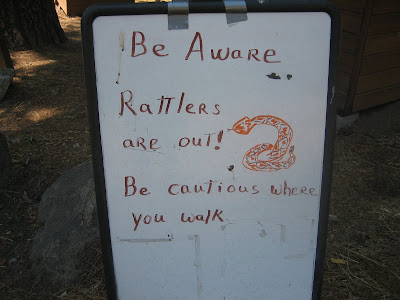 Be Aware
Rattlers
are out!
Be cautious where
you walk